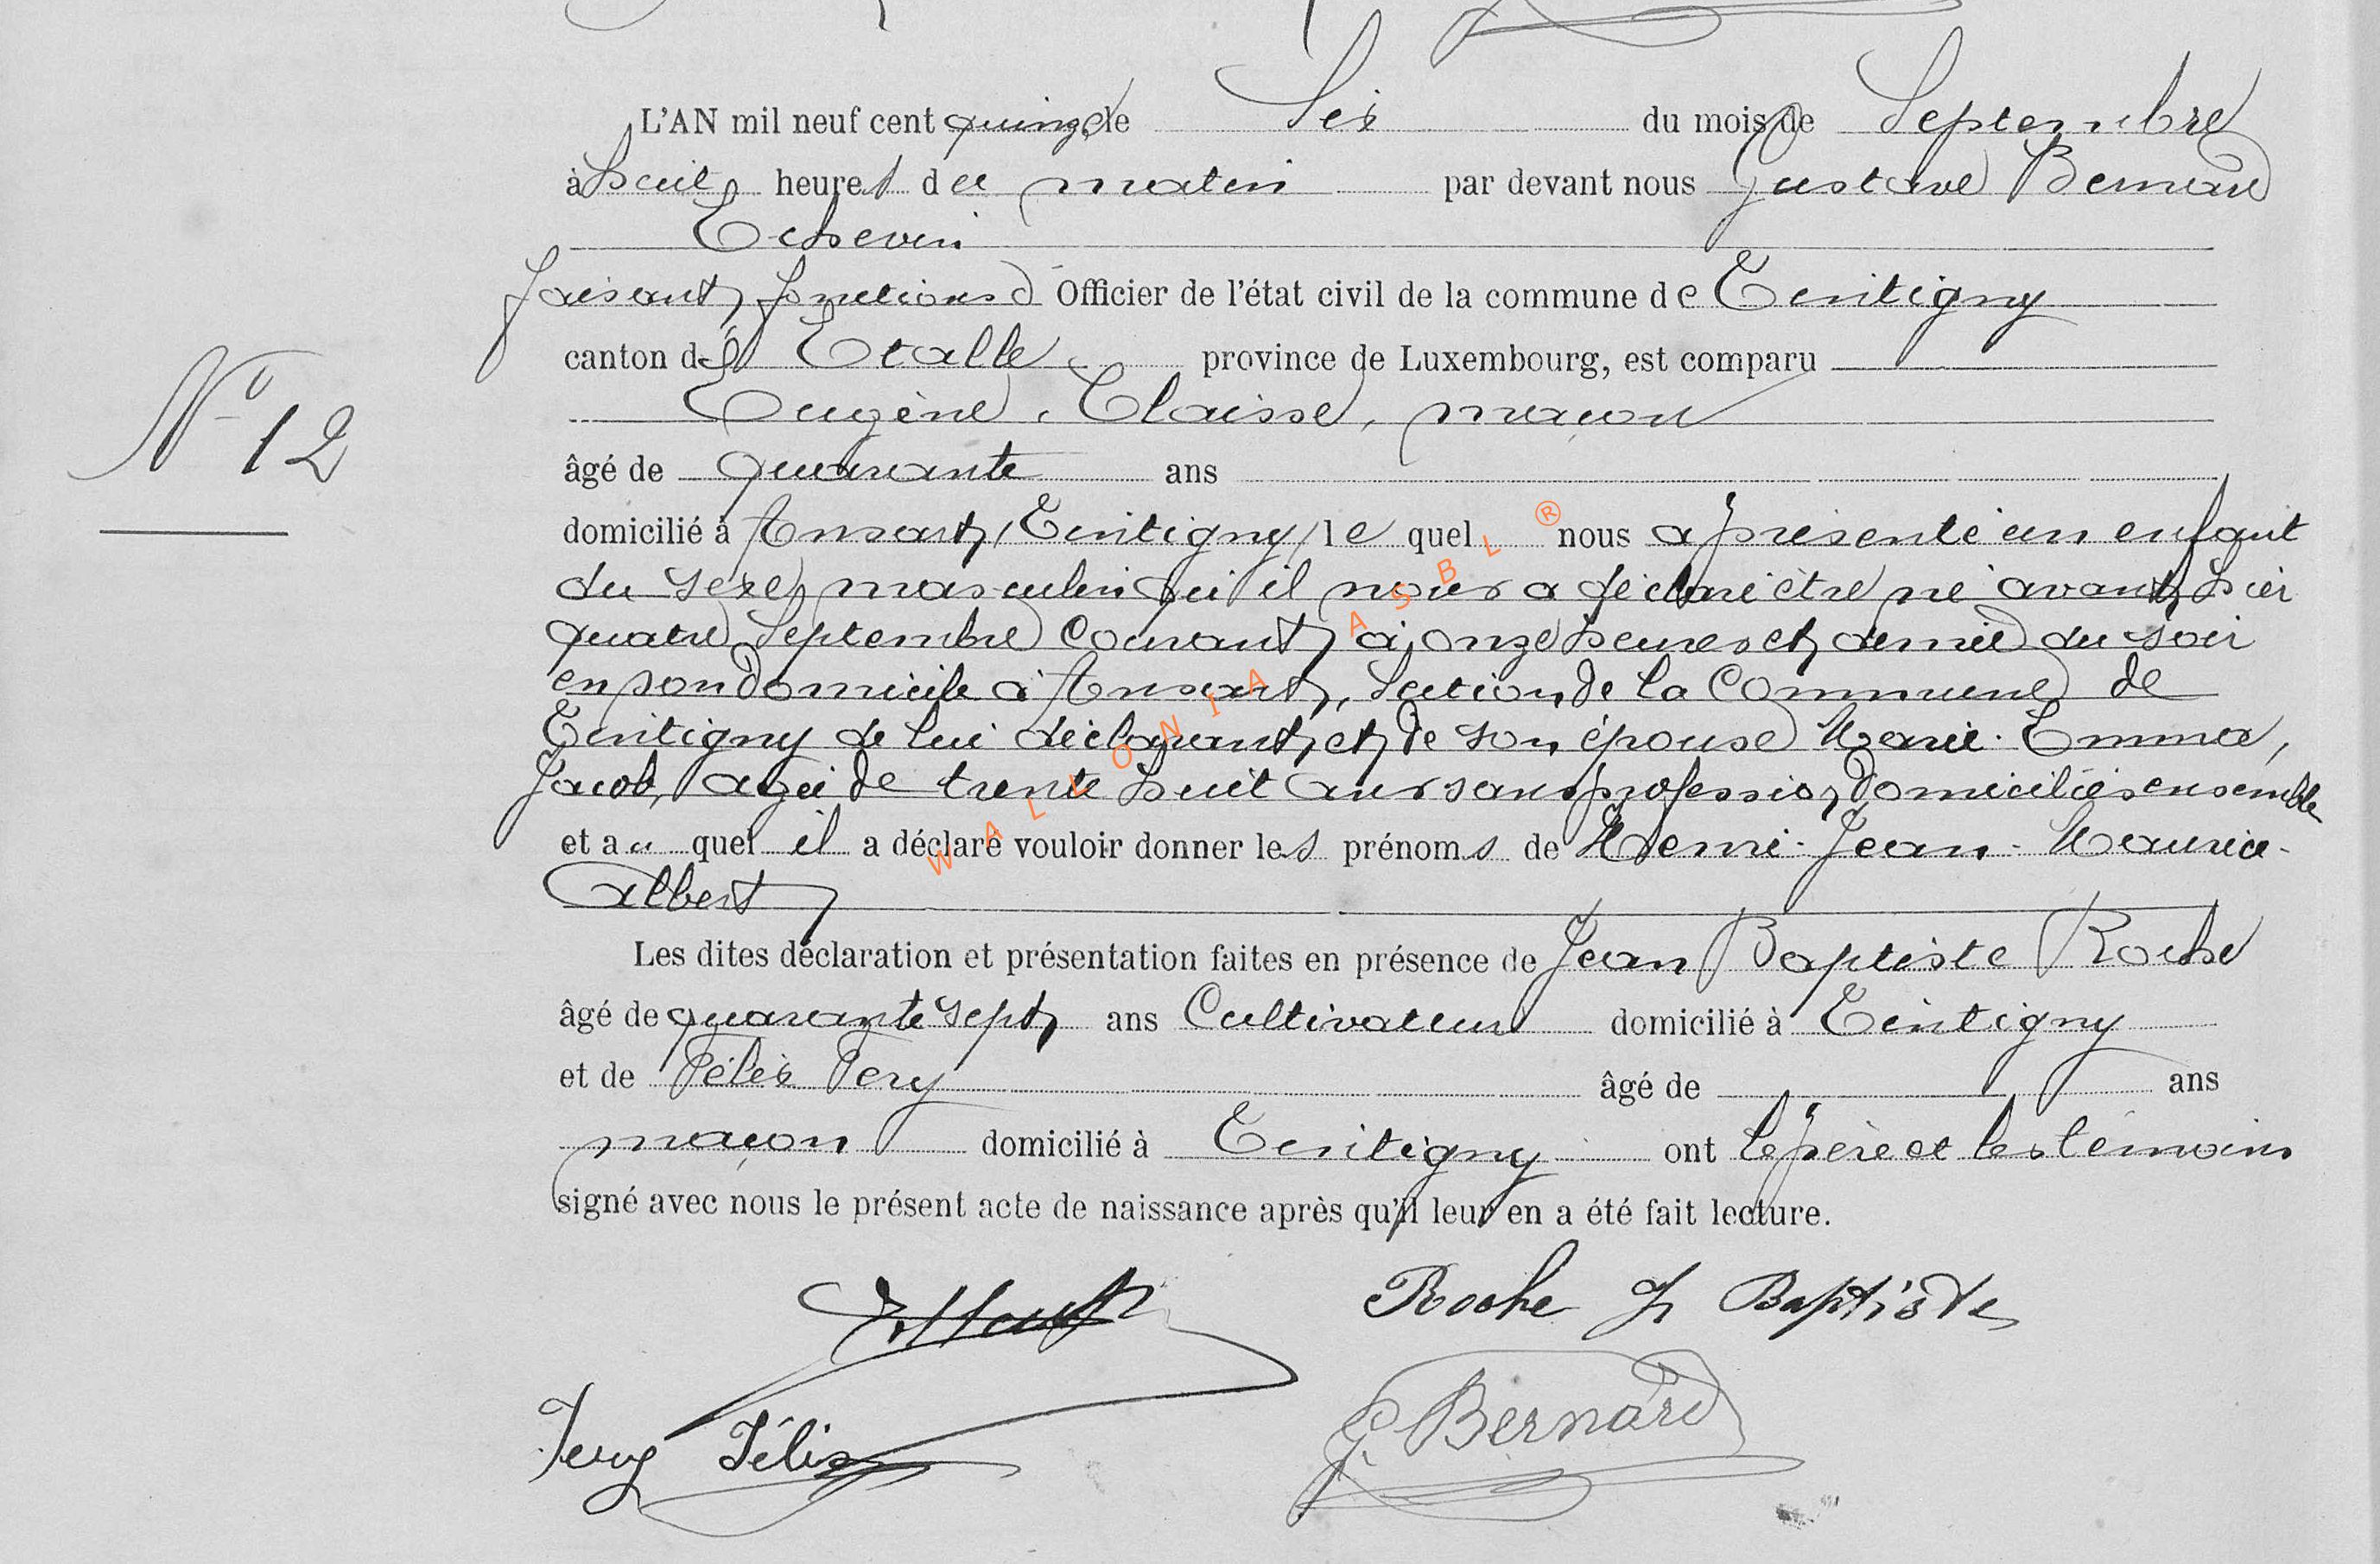 L'AN mil neuf cent quinze le Six du mois de Septembre
à huit heures du matin par devant nous Gustave Bernard
Echevin
faisant fonctions d' Officier de l'état civil de la commune de Tintigny
canton d' Etalle province de Luxembourg, est comparu
Eugène Claisse, maçon
N° 12
âgé de quarante ans
domicilié à Ansart, (Tintigny) le quel nous a présenté un enfant
du sexe masculin qu'il nous a déclaré être né avant hier
quatre Septembre courant à onze heures et demie du soir
en son domicile à Ansart, Section de la Commune de
Tintigny de lui déclarant et de son épouse Marie-Emma,
Jacob, agée de trente huit ans sans profession domiciliés ensemble
et au quel il a déclaré vouloir donner les prénoms de Henri-Jean-Maurice-
Albert
Les dites déclaration et présentation faites en présence de Jean Baptiste Roche
âgé de quarante sept ans Cultivateur domicilié à Tintigny
et de Félix Fery âgé de ans
maçon domicilié à Tintigny ont le père et les témoins
signé avec nous le présent acte de naissance après qu'il leur en a été fait lecture.
Roche J Baptiste
Fery Félix
G. Bernard
WALLONIA ASBL ®